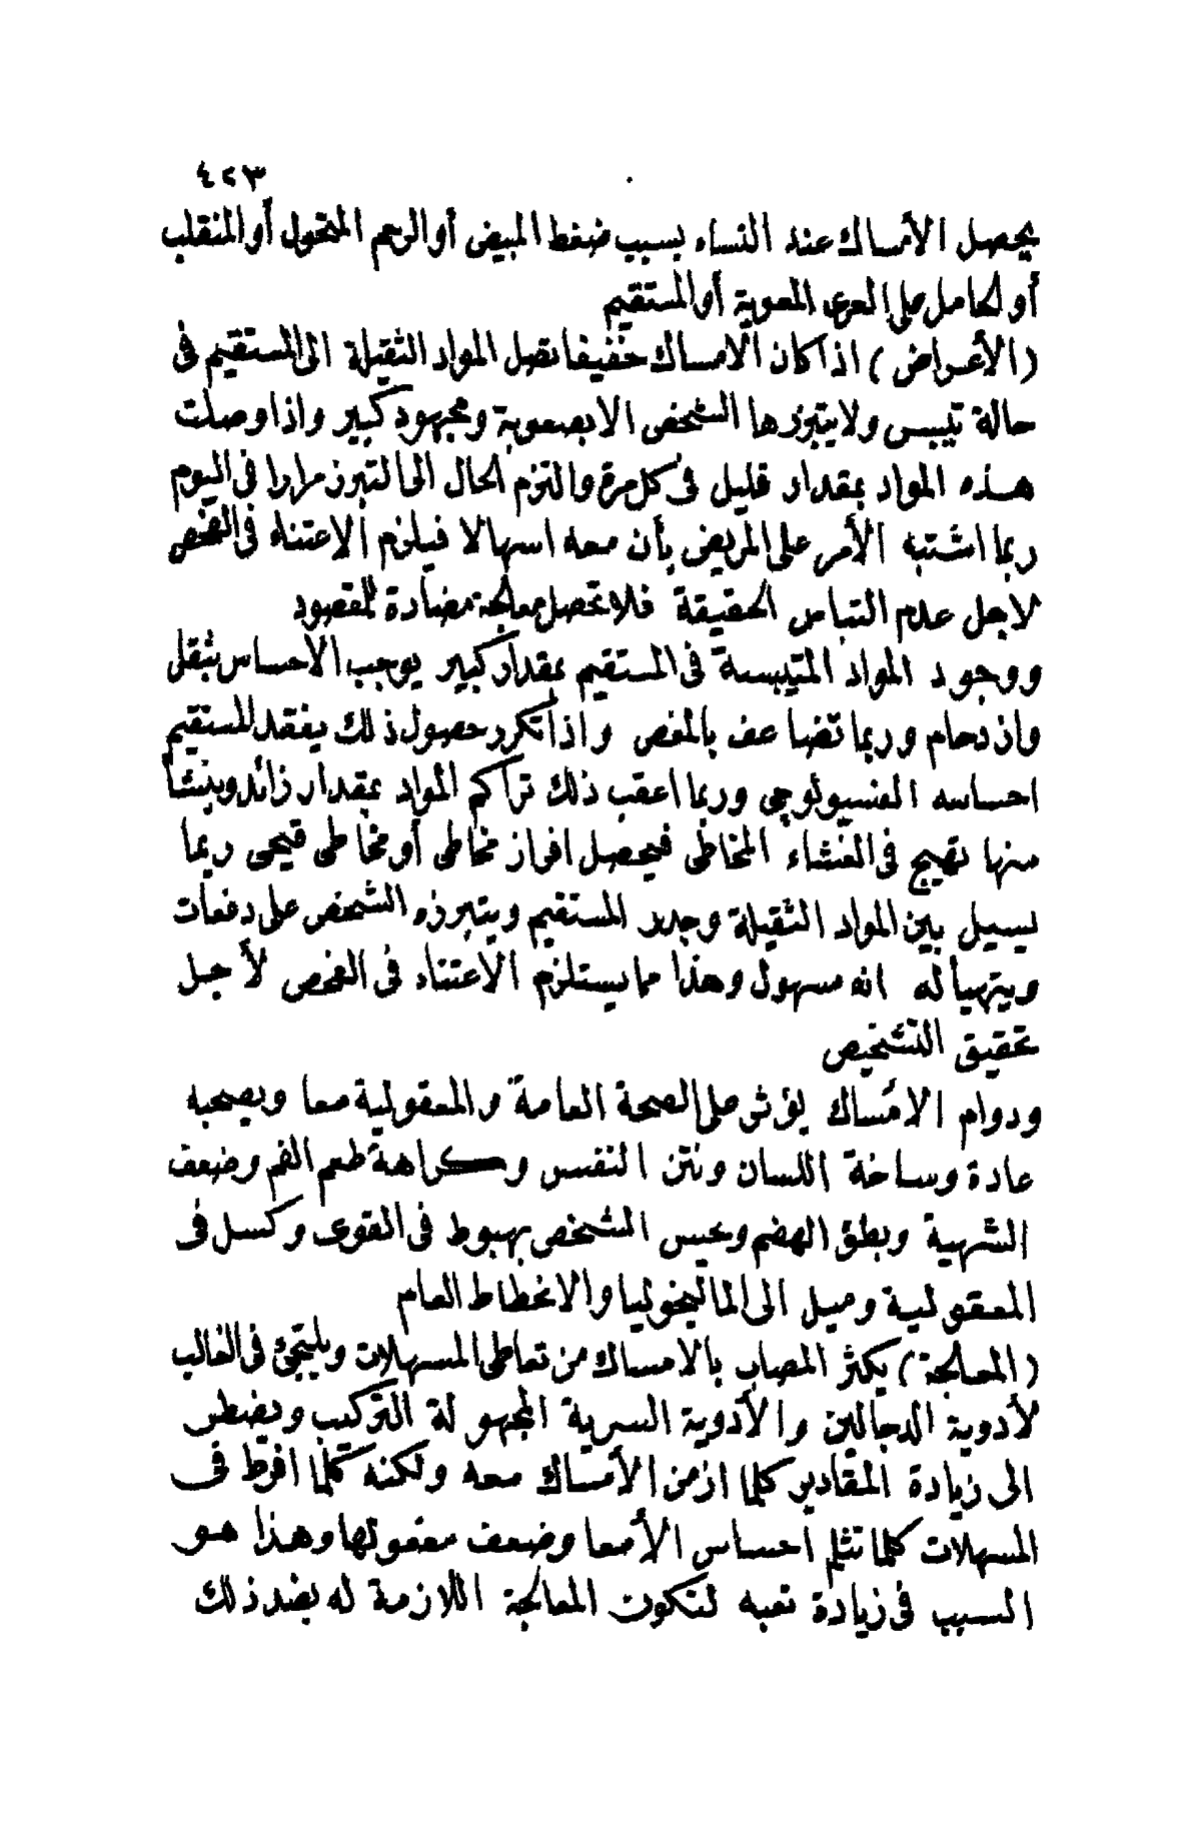 ٤٢٣
يحصل الأمساك عند النساء بسبب ضغط المبيض أو الرحم المتحول أو المنقلب
أو الحامل على العرى المعوية أو المستقيم
(الأعراض) اذا كان الامساك خفيفا تصل المواد الثقيلة الى المستقيم فى
حالة تيبس ولا يتبرزها الشخص الا بصعوبة ومجهود كبير واذا وصلت
هذه المواد بمقدار قليل فى كل مرة والتزم الحال الى التبرز مرارا فى اليوم
ربما اشتبه الأمر على المريض بأن معه اسهالا فيلزم الاعتناء فى الفحص
لاجل عدم التباس الحقيقة فلا تحصل معالجة مضادة للمقصود
ووجود المواد المتيبسة فى المستقيم بمقدار كبير يوجب الاحساس بثقل
وازدحام وربما تضاعف بالمغص واذا تكرر حصول ذلك يفقد المستقيم
احساسه الفسيولوجى وربما اعقب ذلك تراكم المواد بمقدار زائد وينشأ
منها تهيج فى الغشاء المخاطى فيحصل افراز مخاطى أو مخاطى قيحى ربما
يسيل بين المواد الثقيلة وجدر المستقيم ويتبرزه الشخص على دفعات
ويتهيأ له انه مسهول وهذا مما يستلزم الاعتناء فى الفحص لأجل
تحقيق التشخيص
ودوام الامساك يؤثر على الصحة العامة والمعقولية معا ويصحبه
عادة وساخة اللسان ونتن النفس وكراهة طعم الفم وضعف
الشهية وبطؤ الهضم ويحس الشخص بهبوط فى القوى وكسل فى
المعقولية وميل الى الماليخوليا والانحطاط العام
(المعالجة) يكثر المصاب بالامساك من تعاطى المسهلات ويلتجئ فى الغالب
لأدوية الدجالين والأدوية السرية المجهولة التركيب ويضطر
الى زيادة المقادير كلما ازمن الأمساك معه ولكنه كلما افرط فى
المسهلات كلما تثلم احساس الأمعا وضعف مقعوتها وهذا هو
السبب فى زيادة تعبه لتكون المعالجة اللازمة له بضد ذلك